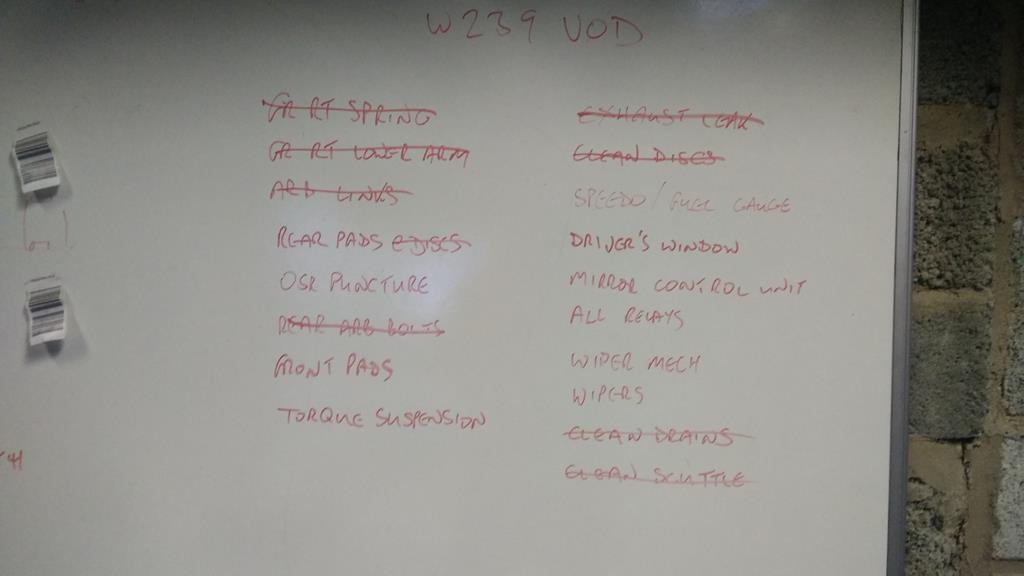 W239 VOD
FR RT SPRING
FR RT LOWER ARM
ARB LINKS
REAR PADS & DISCS
OSR PUNCTURE
REAR ARB BOLTS
FRONT PADS
TORQUE SUSPENSION
EXHAUST LEAK
CLEAN DISCS
SPEEDO / FUEL GAUGE
DRIVER'S WINDOW
MIRROR CONTROL UNIT
ALL RELAYS
WIPER MECH
WIPERS
CLEAN DRAINS
CLEAN SCUTTLE